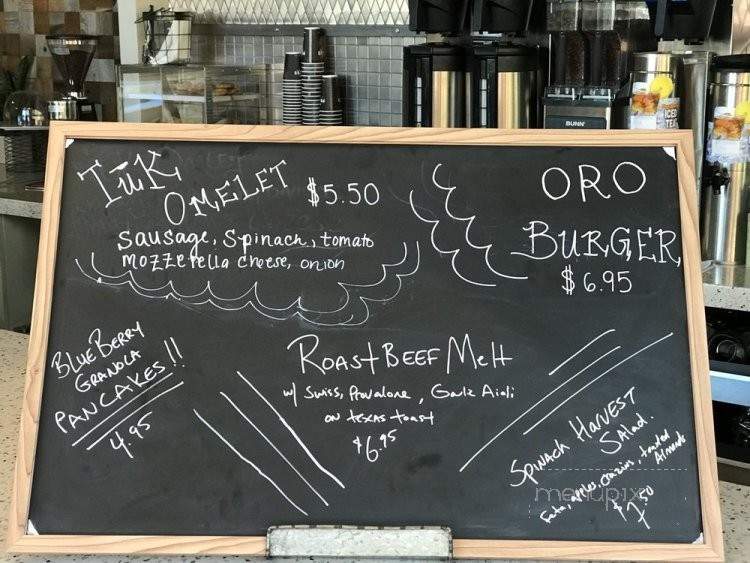 TūK
OMELET $5.50
sausage, spinach, tomato
mozzerella cheese, onion
ORO
BURGER
$6.95
BlueBerry
Granola
PANCAKES!!
4.95
Roast Beef Melt
w/ Swiss, Provalone, Garlic Aioli
on texas toast
$6.95
Spinach Harvest
Salad.
Feta, apples, craizins, toasted
Almonds
$7.50
menupix
BUNN
ICED
TEA